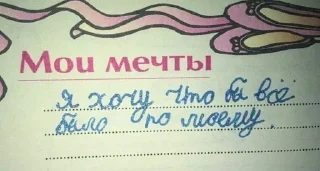 Мои мечты
Я хочу Что бы всё
было по моему.